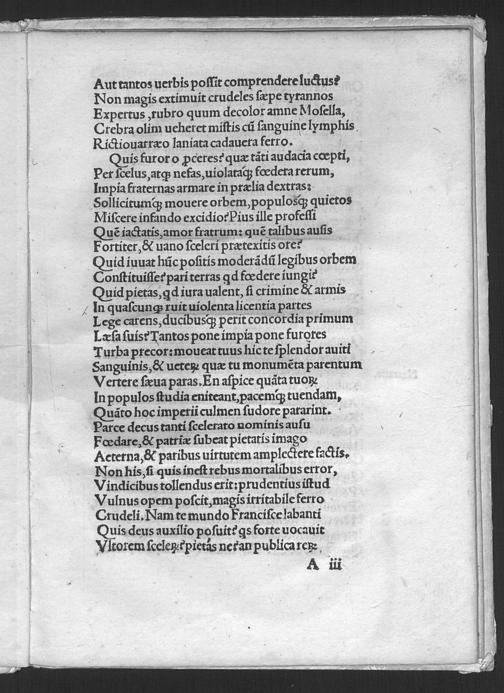 Aut tantos uerbis possit comprendere luctus?
Non magis extimuit crudeles sæpe tyrannos
Expertus, rubro quum decolor amne Mosella,
Crebra olim ueheret mistis cũ sanguine lymphis
Rictiouarræo laniata cadauera ferro.
Quis furor o ꝓceres? quæ tãti audacia cœpti,
Per scelus, atqꝫ nefas, uiolataqꝫ fœdera rerum,
Impia fraternas armare in prælia dextras:
Sollicitumqꝫ mouere orbem, populosqꝫ quietos
Miscere infando excidio? Pius ille professi
Quẽ iactatis, amor fratrum: quẽ talibus ausis
Fortiter, & uano sceleri prætexitis ore?
Quid iuuat hũc positis moderãdũ legibus orbem
Constituisse? pari terras qd fœdere iungi?
Quid pietas, qd iura ualent, si crimine & armis
In quascunqꝫ ruit uiolenta licentia partes
Lege carens, ducibusqꝫ perit concordia primum
Læsa suis? Tantos pone impia pone furores
Turba precor: moueat tuus hic te splendor auiti
Sanguinis, & ueteꝝ quæ tu monumẽta parentum
Vertere sæua paras. En aspice quãta tuoꝝ
In populos studia eniteant, pacemqꝫ tuendam,
Quãto hoc imperii culmen sudore pararint.
Parce decus tanti scelerato nominis ausu
Fœdare, & patriæ subeat pietatis imago
Aeterna, & paribus uirtutem amplectere factis.
Non his, si quis inest rebus mortalibus error,
Vindicibus tollendus erit: prudentius istud
Vulnus opem poscit, magis irritabile ferro
Crudeli. Nam te mundo Francisce labanti
Quis deus auxilio posuit? qs forte uocauit
Vltorem sceleꝝ? pietás ne? an publica reꝝ
A iii